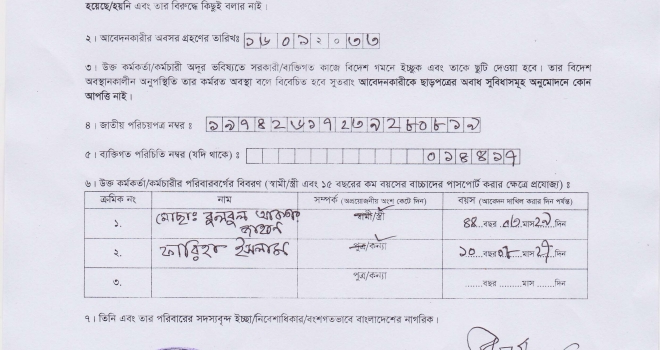 হয়েছে/হয়নি এবং তার বিরুদ্ধে কিছুই বলার নাই।
২। আবেদনকারীর অবসর গ্রহণের তারিখঃ
৩। উক্ত কর্মকর্তা/কর্মচারী অদূর ভবিষ্যতে সরকারী/ব্যক্তিগত কাজে বিদেশ গমনে ইচ্ছুক এবং তাকে ছুটি দেওয়া হবে। তার বিদেশ
অবস্থানকালীন অনুপস্থিতি তার কর্মরত অবস্থা বলে বিবেচিত হবে সুতরাং আবেদনকারীকে ছাড়পত্রের অবাধ সুবিধাসমূহ অনুমোদনে কোন
আপত্তি নাই।
৪। জাতীয় পরিচয়পত্র নম্বর ঃ
৫। ব্যক্তিগত পরিচিতি নম্বর (যদি থাকে) ঃ
৬। উক্ত কর্মকর্তা/কর্মচারীর পরিবারবর্গের বিবরণ (স্বামী/স্ত্রী এবং ১৫ বছরের কম বয়সের বাচ্চাদের পাসপোর্ট করার ক্ষেত্রে প্রযোজ্য) ঃ
ক্রমিক নং নাম সম্পর্ক (অপ্রয়োজনীয় অংশ কেটে দিন) বয়স (আবেদন দাখিল করার দিন পর্যন্ত)
১. মোছাঃ বুলবুল স্বামী/স্ত্রী ৪৪ বছর মাস ২৯ দিন
২. ফারিহা ইসলাম পুত্র/কন্যা ১০ বছর মাস ২৭ দিন
৩. পুত্র/কন্যা ........বছর ........মাস ......দিন
৭। তিনি এবং তার পরিবারের সদস্যবৃন্দ ইচ্ছা/নিবেশাধিকার/বংশগতভাবে বাংলাদেশের নাগরিক।